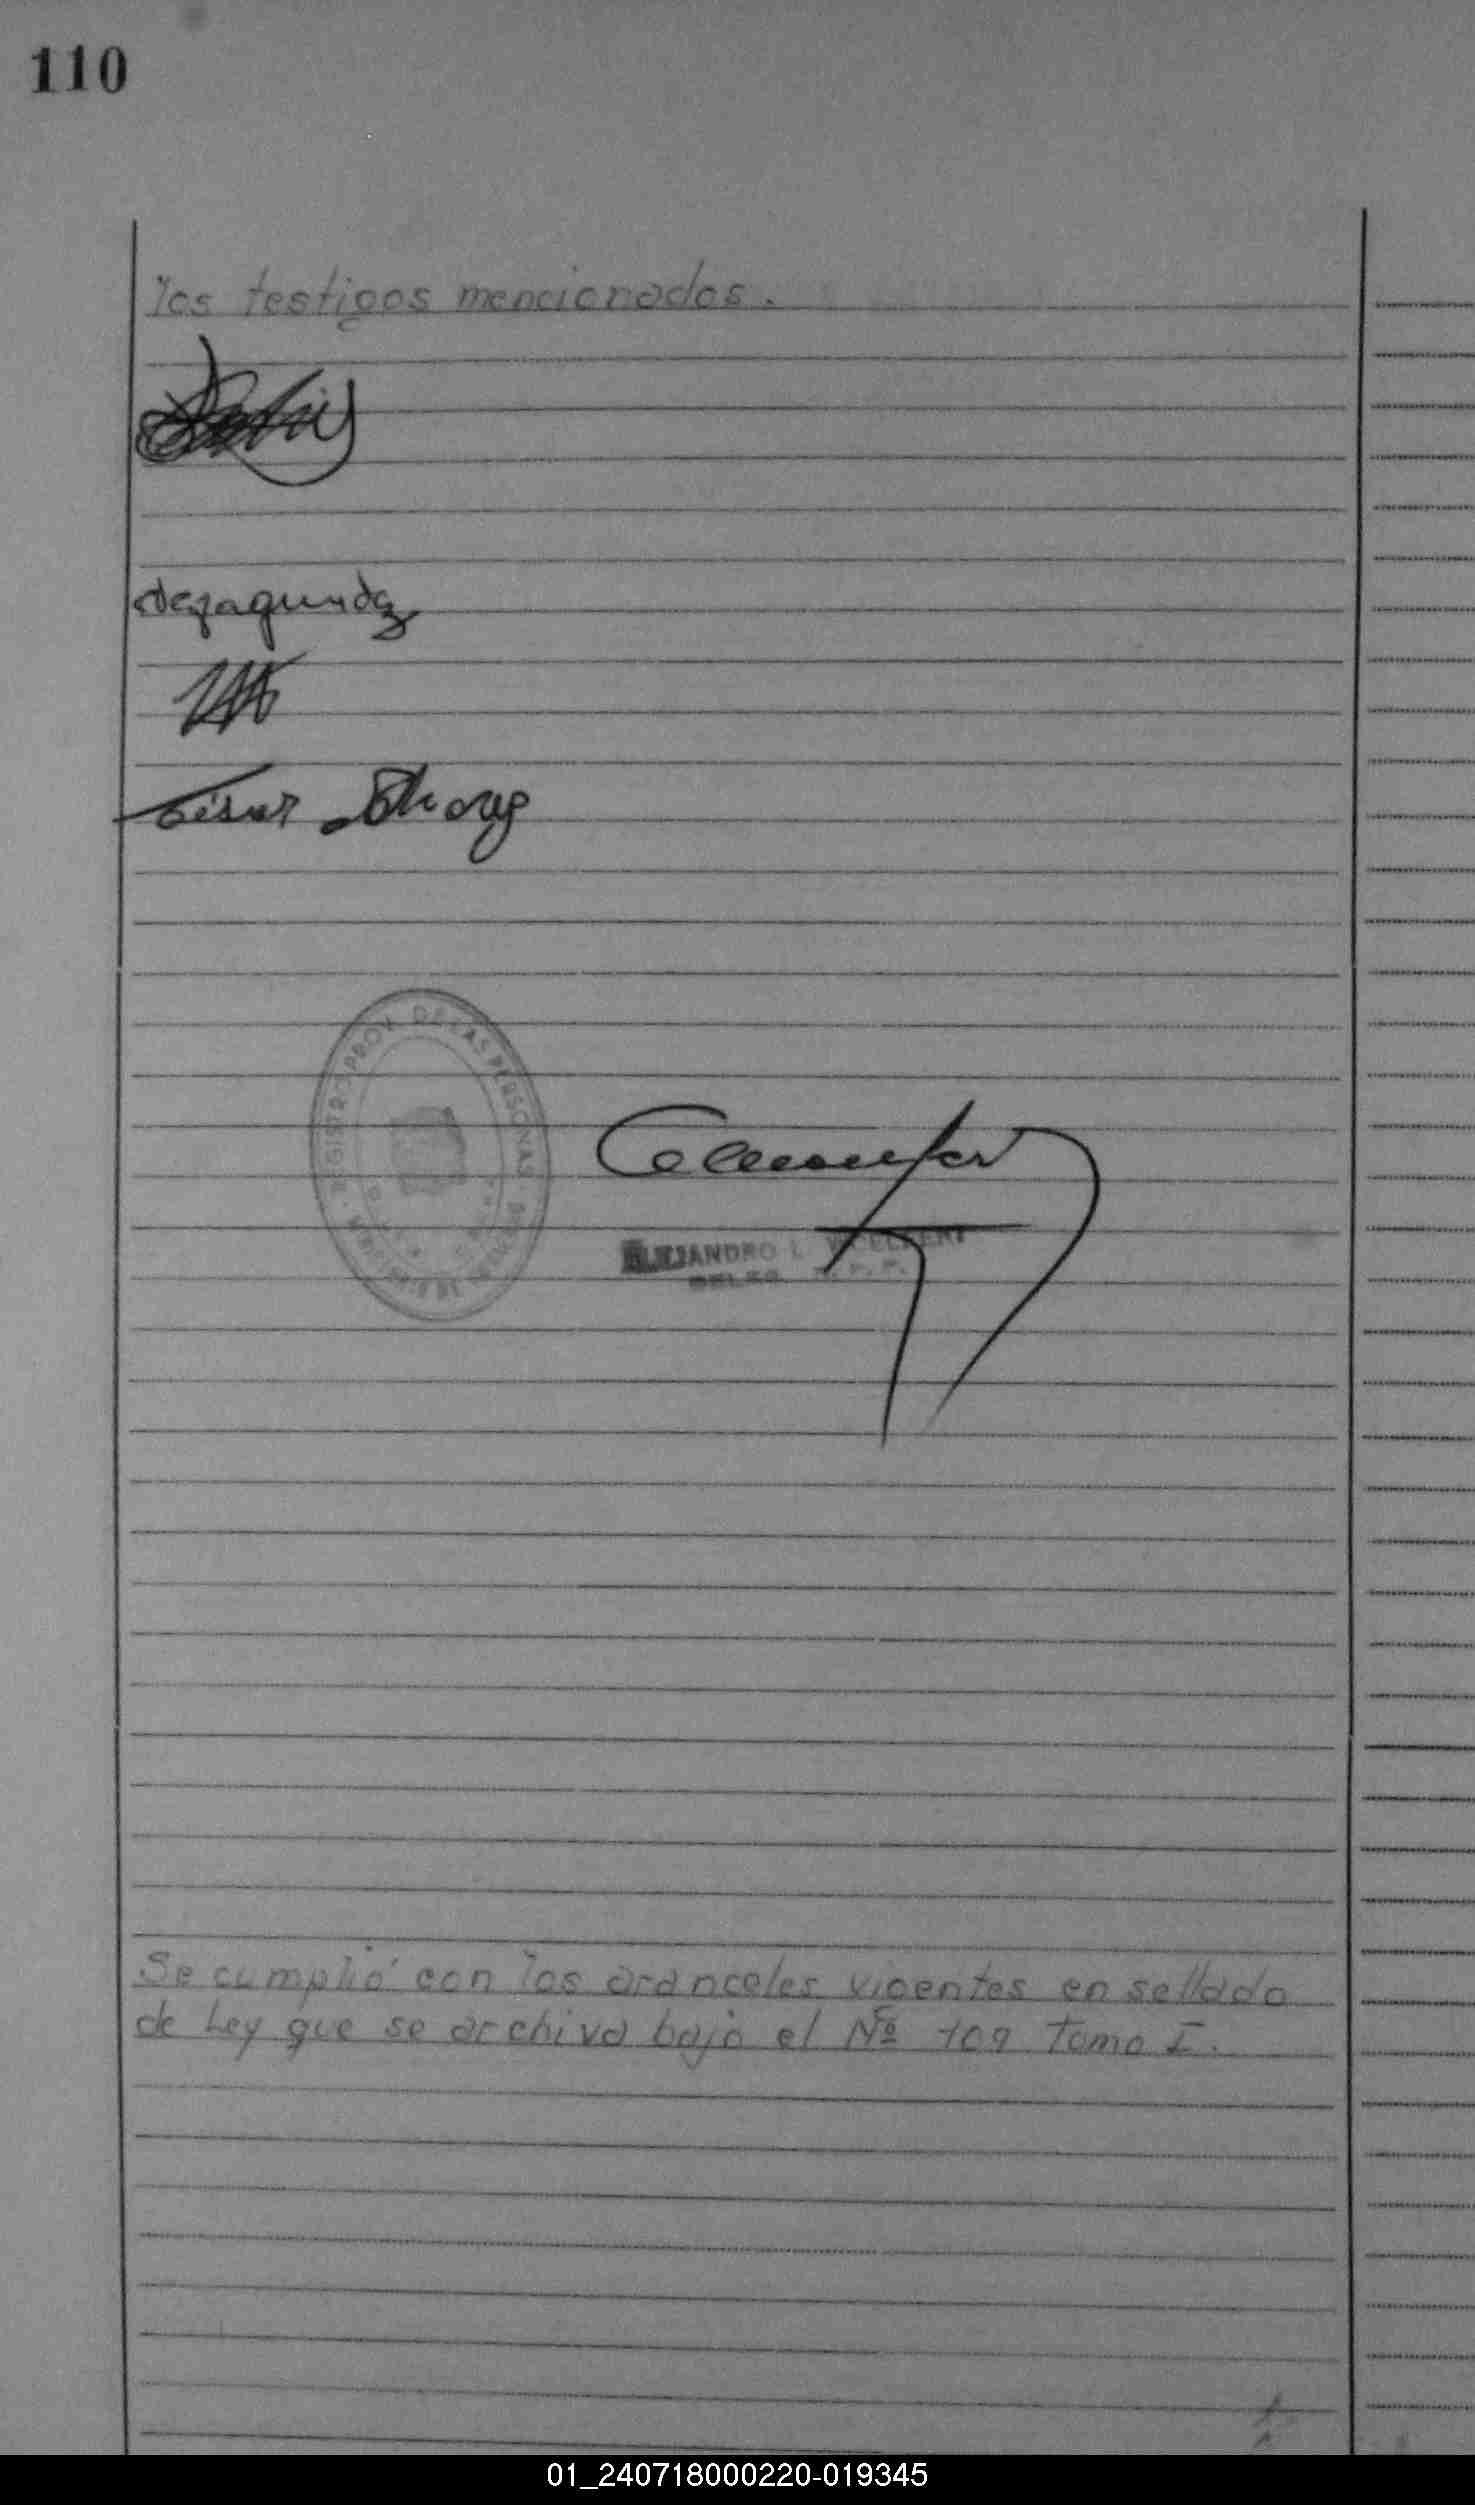 110
los testigos mencionados.
César
REGISTRO PROV. DE LAS PERSONAS
ALEJANDRO L.
DELEG. R. P. P.
Se cumplió con los aranceles vigentes en sellado
de Ley que se archiva bajo el Nº 109 Tomo I.
01_240718000220-019345